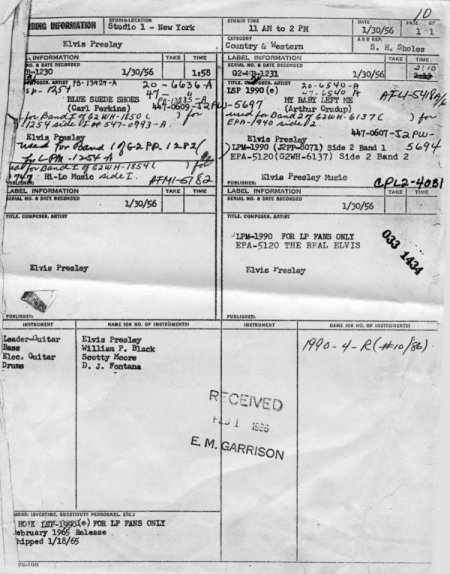 10
RDING INFORMATION
STUDIO-LOCATION
Studio 1 - New York
STUDIO TIME
11 AM to 2 PM
DATE
1/30/56
PAGE
1 of 1
Elvis Presley
CATEGORY
Country & Western
A&R REP.
S. H. Sholes
LABEL INFORMATION
TAKE
TIME
LABEL INFORMATION
TAKE
TIME
2:10
SERIAL NO. & DATE RECORDED
SERIAL NO. & DATE RECORDED
-1230
1/30/56
1:58
-1231
1/30/56
TITLE, COMPOSER, ARTIST
20-6636-A
LSP 1990 (e)
20-6540-A
1254
47-
BLUE SUEDE SHOES
(Carl Perkins)
447-0609-J2PW-5697
MY BABY LEFT ME
(Arthur Crudup)
for Band 1 of G2WH-1850 (
) for
used for Band 2 of G2WH-6137 (
) for
1254 side
EPA-940 side 2.
447-0607-J2PW-
5694
Elvis Presley
Elvis Presley
used for Band 1 of G2PP.
LPM-1990 (J2PP-8071) Side 2 Band 1
for LPM-1254-A
EPA-5120(G2WH-6137) Side 2 Band 2
used for Band 1 of G2WH-1854 (
) for
747
Hi-Lo Music
side 1.
AFM1-5182
Elvis Presley Music
CPL2-4031
LABEL INFORMATION
TAKE
TIME
LABEL INFORMATION
TAKE
TIME
SERIAL NO. & DATE RECORDED
SERIAL NO. & DATE RECORDED
1/30/56
1/30/56
TITLE, COMPOSER, ARTIST
TITLE, COMPOSER, ARTIST
033 1434
LPM-1990 FOR LP FANS ONLY
EPA-5120 THE REAL ELVIS
Elvis Presley
Elvis Presley
PUBLISHER:
PUBLISHER:
INSTRUMENT
NAME (OR NO. OF INSTRUMENTS)
INSTRUMENT
NAME (OR NO. OF INSTRUMENTS)
Leader-Guitar
Elvis Presley
Bass
William P. Black
Elec. Guitar
Scotty Moore
Drums
D. J. Fontana
1990-4-R (#10/86)
RECEIVED
E. M. GARRISON
ARKS: (OVERTIME, SUBSTITUTE PERSONNEL, ETC.)
LSP-1990(e) FOR LP FANS ONLY
ebruary 1965 Release
hipped 1/18/65